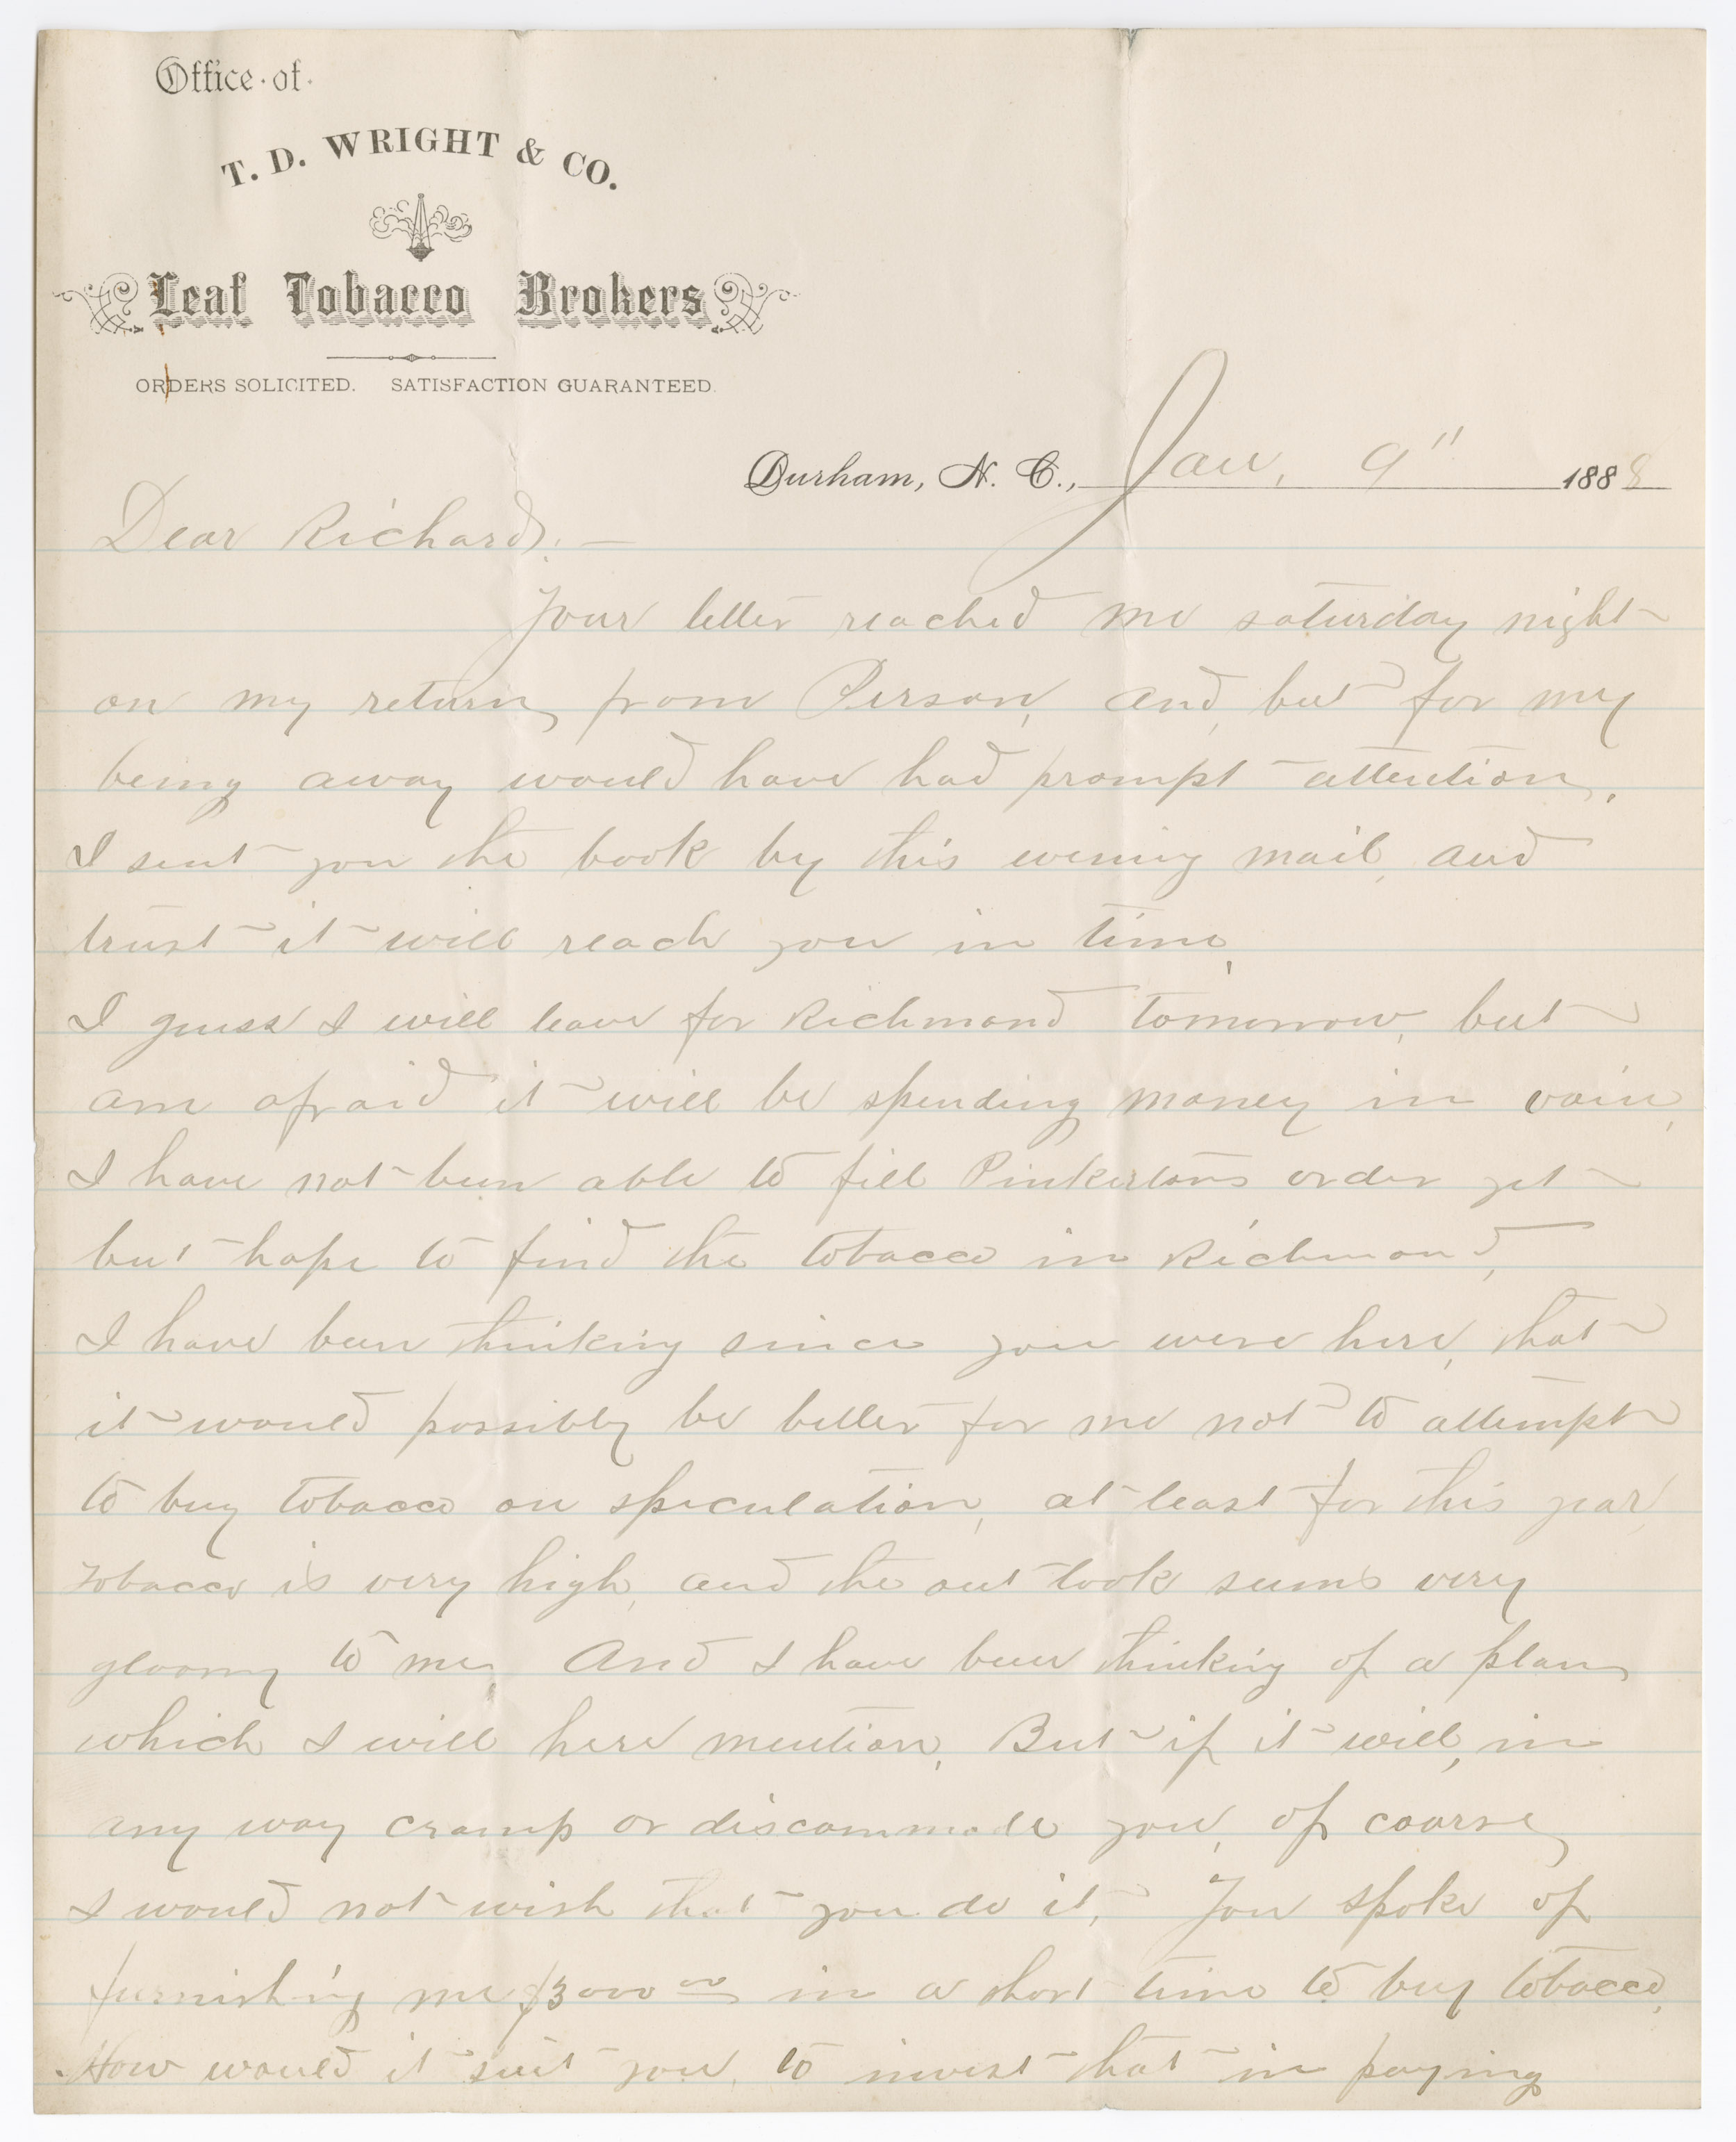 Office of
T. D. WRIGHT & CO.
Leaf Tobacco Brokers
ORDERS SOLICITED. SATISFACTION GUARANTEED.
Durham, N. C., Jan, 9" 1888
Dear Richard: —
Your letter reached me saturday night
on my return from Person, and, but for my
being away would have had prompt attention.
I sent you the book by this evening mail, and
trust it will reach you in time.
I guess I will leave for Richmond tomorrow, but
am afraid it will be spending money in vain,
I have not been able to fill Pinkertons order yet
but hope to find the tobacco in Richmond,
I have been thinking since you were here, that
it would possibly be better for me not to attempt
to buy tobacco on speculation, at least for this year,
Tobacco is very high, and the out look seems very
gloomy to me, And I have been thinking of a plan
which I will here mention, But if it will, in
any way cramp or discommode you, of course
I would not wish that you do it, You spoke of
furnishing me $3000 00 in a short time to buy tobacco,
How would it suit you, to invest that in paying